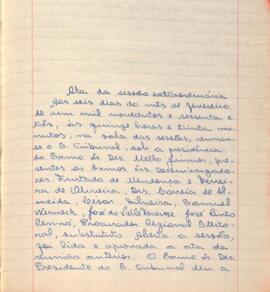 Ata da sessão extraordinária
Aos seis dias do mês de fevereiro
de um mil novecentos e sessenta e
três, às quinze horas e trinta mi-
nutos, na sala das sessões, reuniu-
se o E. Tribunal, sob a presidência
do Exmo. Sr. Des. Mello Junior, pre-
sentes os Exmos. Srs. Desembargado-
res Furtado de Mendonça e Ferrei-
ra de Oliveira, Drs. Correia de Al-
meida, Cesar Silveira, Samuel
Werneck, José do Valle Ferreira José Pinto
Renno, Procurador Regional Eleito-
ral, substituto. Aberta a sessão,
foi lida e aprovada a ata da
reunião anterior. O Exmo. Sr. Des.
Presidente do E. Tribunal deu a